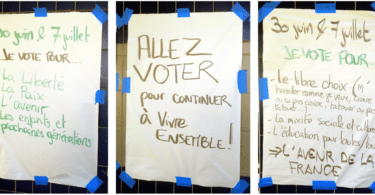 30 juin & 7 juillet
JE VOTE POUR...
La Liberté
La Paix
L'avenir
Les enfants et
prochaines générations
ALLEZ
VOTER
pour CONTINUER
à VIVRE
ENSEMBLE!
30 juin & 7 juillet
JE VOTE POUR...
- le libre choix (m'
habiller comme je veux, croire
ou ne pas croire,
- La mixité sociale et
- L'éducation pour tous/
⇒ L'AVENIR DE LA
FRANCE